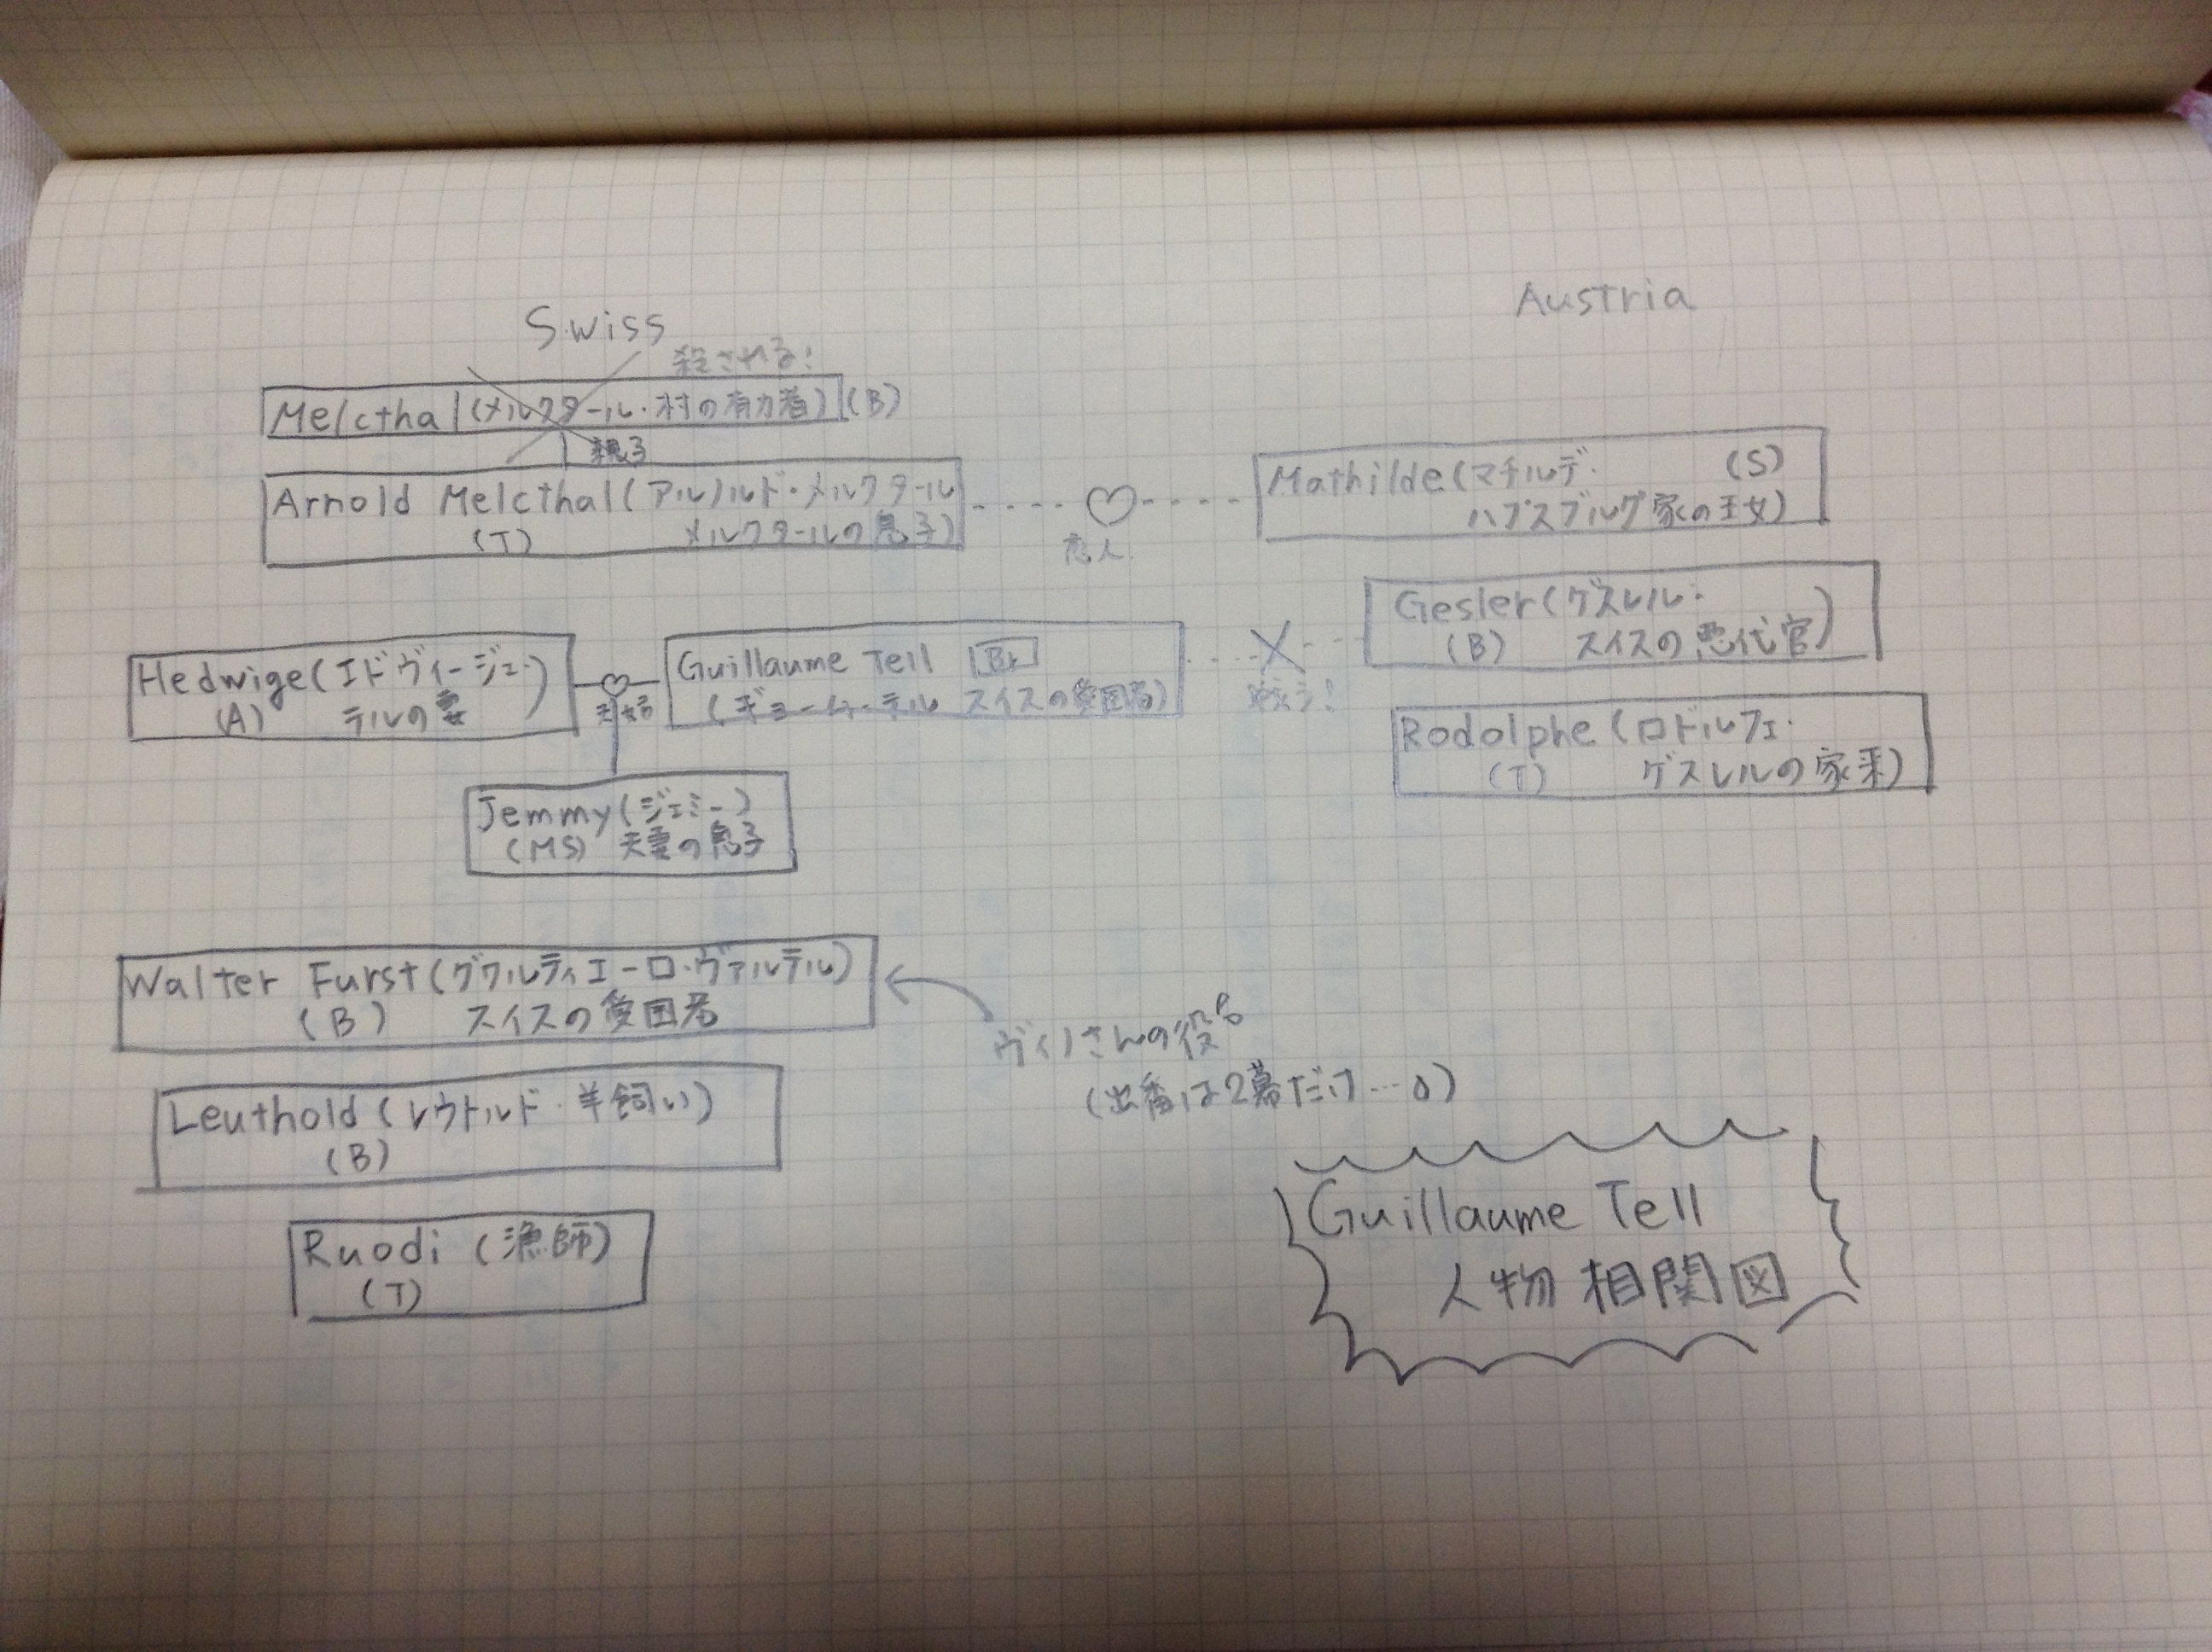 Swiss
Austria
殺される!
Melcthal(メルクタール・村の有力者)(B)
親子
Arnold Melcthal(アルノルド・メルクタール
(T) メルクタールの息子)
恋人
Mathilde(マチルデ・ (S)
ハプスブルグ家の王女)
Gesler(ゲスレル・
(B) スイスの悪代官)
Hedwige(エドヴィージェ・
(A) テルの妻)
夫婦
Guillaume Tell Br
(ギヨーム・テル スイスの愛国者)
戦う!
Rodolphe(ロドルフェ・
(T) ゲスレルの家来)
Jemmy(ジェミー)
(MS) 夫妻の息子
Walter Furst(グワルティエーロ・ヴァルテル)
(B) スイスの愛国者
ヴィノさんの役
(出番は2幕だけ…)
Leuthold(レウトルド・羊飼い)
(B)
Ruodi(漁師)
(T)
Guillaume Tell
人物相関図